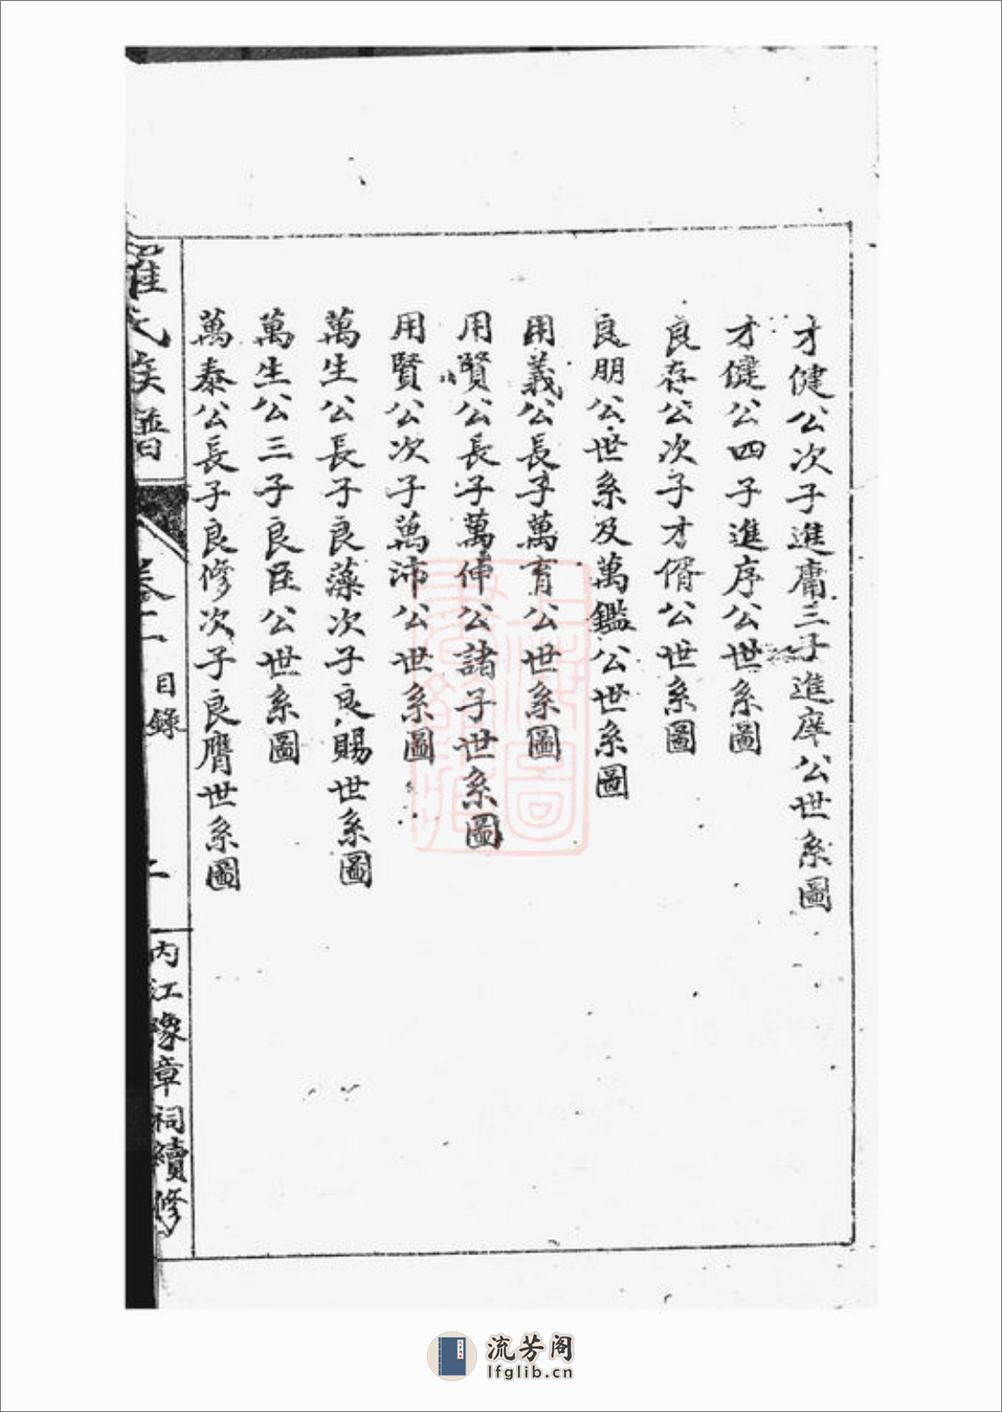 才健公次子進庸三子進庠公世系圖
才健公四子進序公世系圖
良存公次子才偦公世系圖
良朋公世系及萬鑑公世系圖
用義公長子萬育公世系圖
用賢公長子萬俥公諸子世系圖
用賢公次子萬沛公世系圖
萬生公長子良藻次子良賜世系圖
萬生公三子良臣公世系圖
萬泰公長子良修次子良膺世系圖
羅氏族譜
卷二
目錄
二
内江豫章祠續修
流芳阁
lfglib.cn